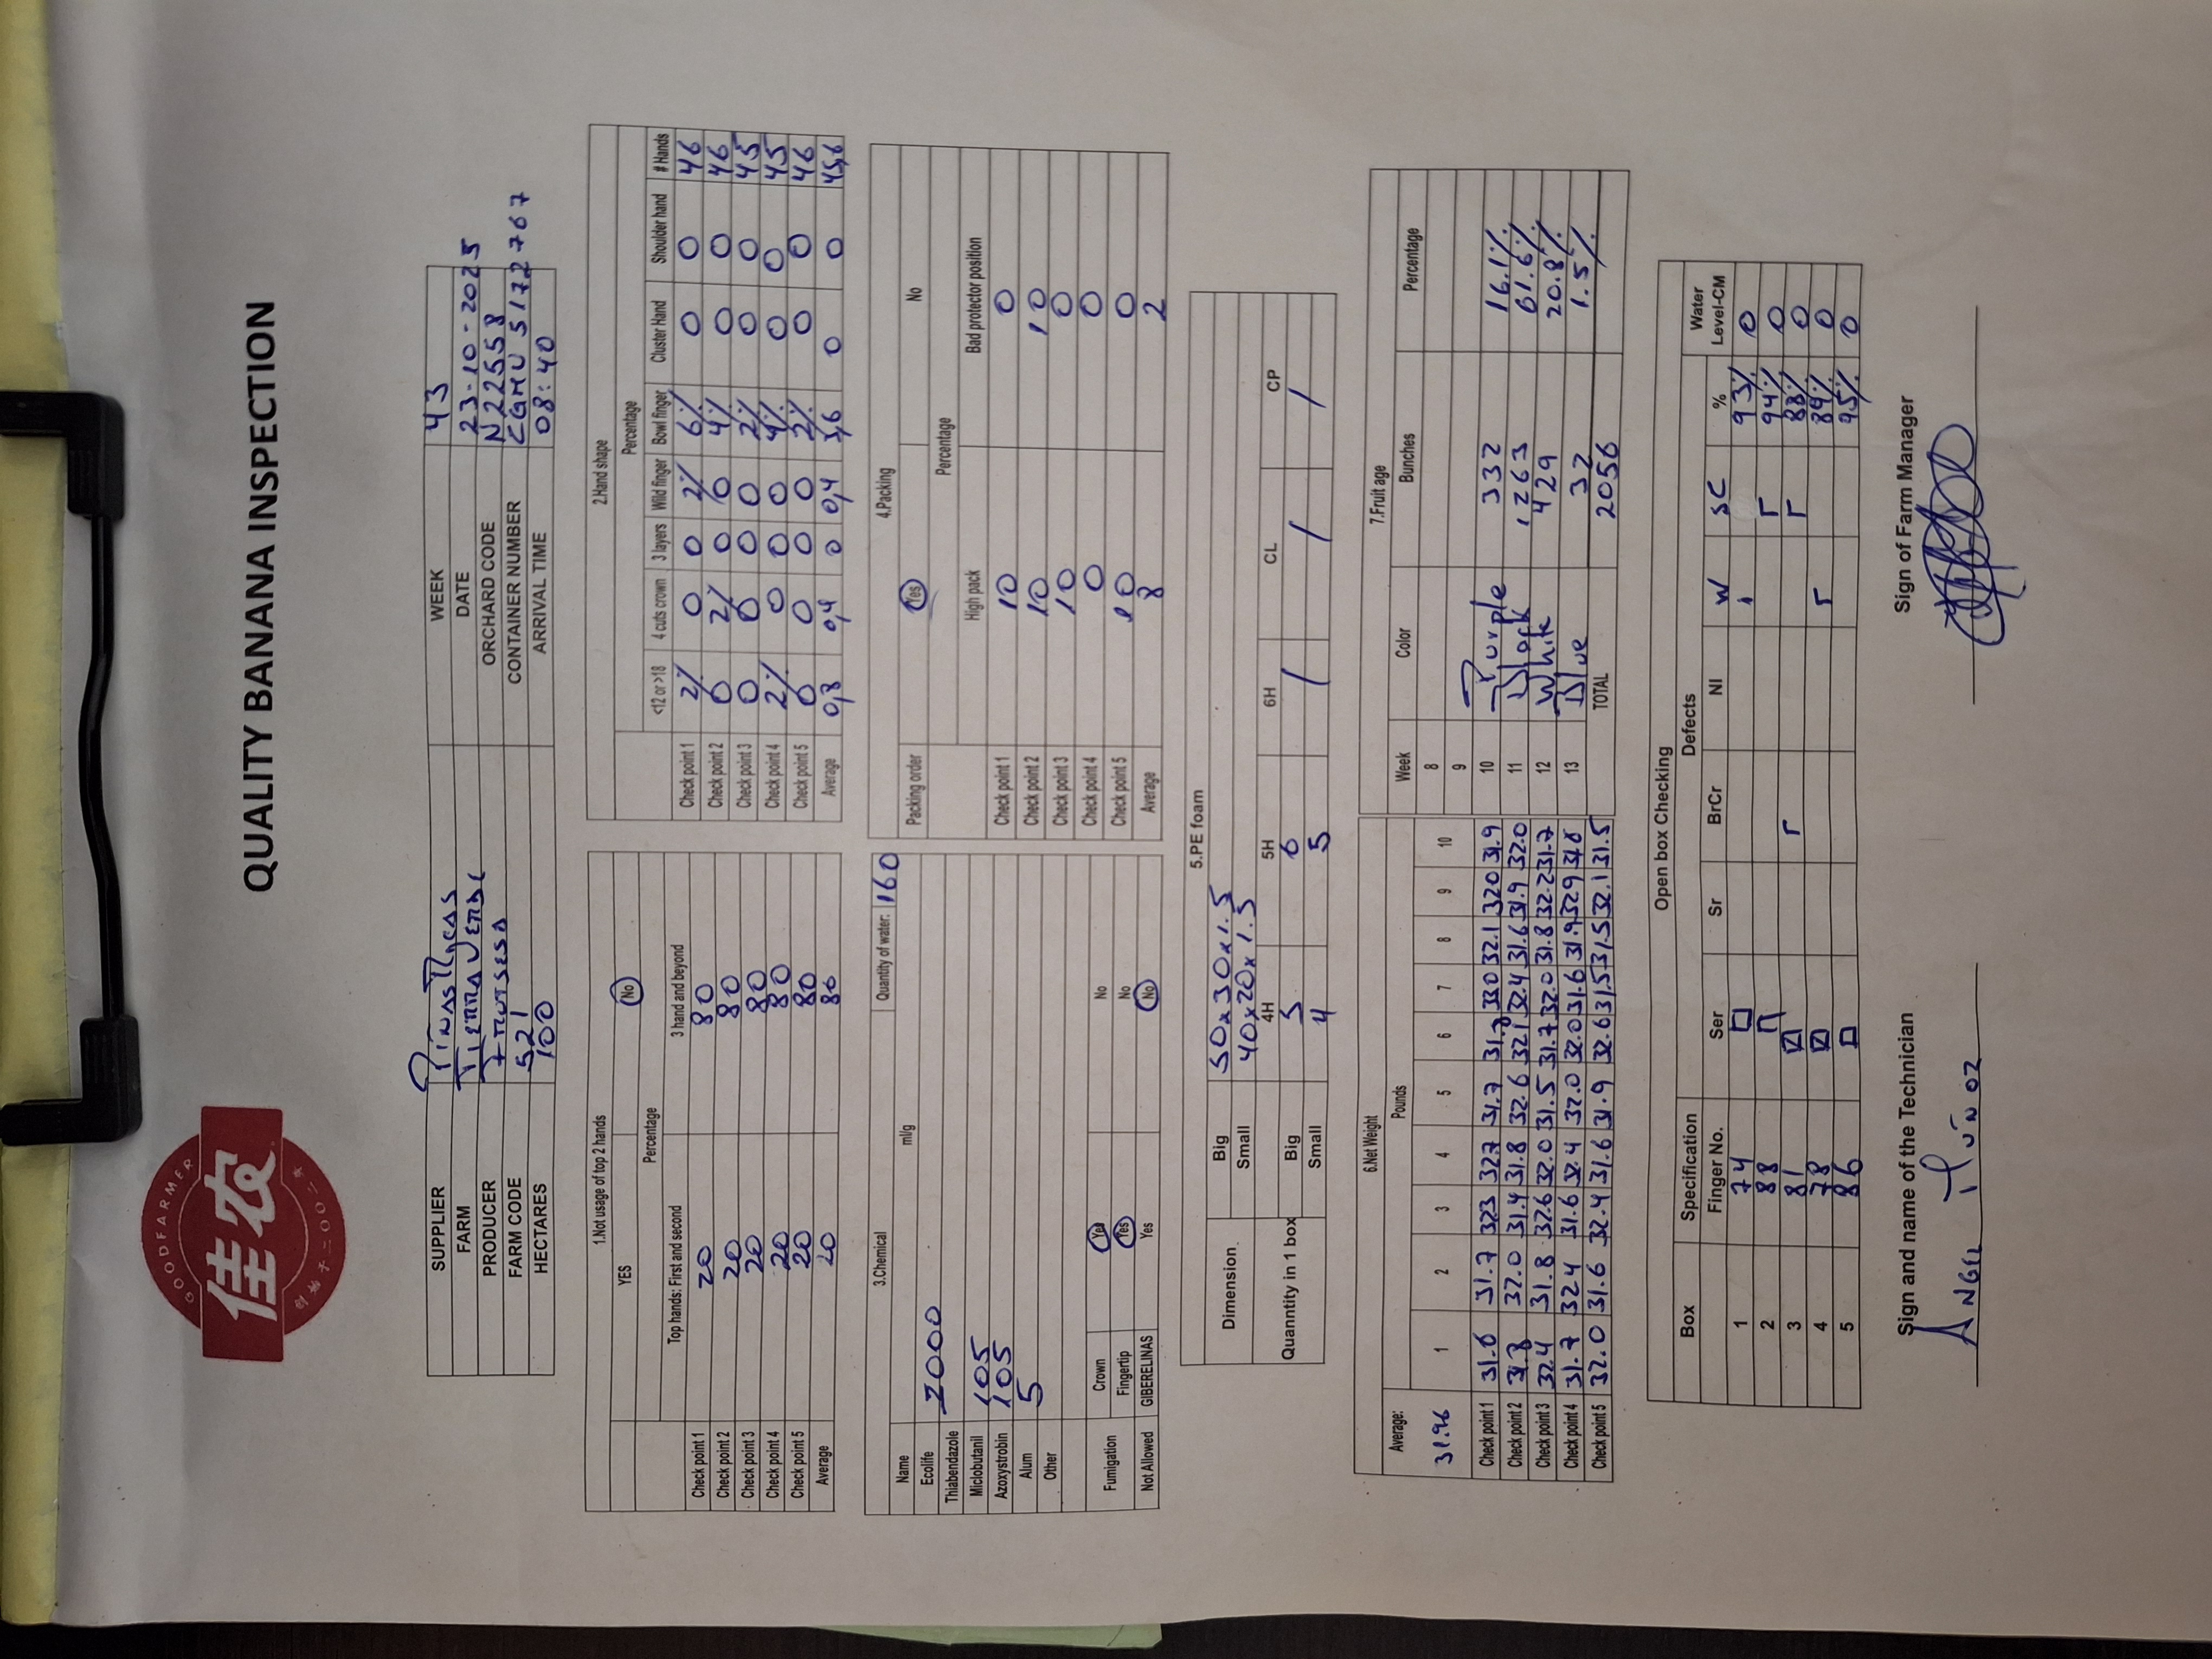 GOODFARMER
佳农
创始于二〇〇二年
QUALITY BANANA INSPECTION
SUPPLIER Piñas Rocas WEEK 43
FARM TIERRA VERDE DATE 23-10-2025
PRODUCER FRUTSESA ORCHARD CODE N22558
FARM CODE 521 CONTAINER NUMBER CGMU 5172767
HECTARES 100 ARRIVAL TIME 08:40
1.Not usage of top 2 hands
YES No
Percentage
Top hands: First and second 3 hand and beyond
Check point 1 20 80
Check point 2 20 80
Check point 3 20 80
Check point 4 20 80
Check point 5 20 80
Average 20 80
2.Hand shape
Percentage
<12 or >18 4 cuts crown 3 layers Wild finger Bowl finger Cluster Hand Shoulder hand # Hands
Check point 1 2% 0 0 2% 6% 0 0 46
Check point 2 0 2% 0 0 4% 0 0 46
Check point 3 0 0 0 0 2% 0 0 45
Check point 4 2% 0 0 0 4% 0 0 45
Check point 5 0 0 0 0 2% 0 0 46
Average 0,8 0,4 0 0,4 3,6 0 0 45,6
3.Chemical Quantity of water: 160
Name ml/g
Ecolife 2000
Thiabendazole
Miclobutanil 105
Azoxystrobin 105
Alum 5
Other
Fumigation Crown Yes No
Fingertip Yes No
Not Allowed GIBERELINAS Yes No
4.Packing
Packing order Yes No
Percentage
High pack Bad protector position
Check point 1 10 0
Check point 2 10 10
Check point 3 10 0
Check point 4 0 0
Check point 5 10 0
Average 8 2
5.PE foam
Dimension Big 50x30x1.5
Small 40x20x1.5
4H 5H 6H CL CP
Quanntity in 1 box Big 5 6 / / /
Small 4 5
6.Net Weight
Average: Pounds
31.96 1 2 3 4 5 6 7 8 9 10
Check point 1 31.6 31.7 323 327 31.7 31.8 330 32.1 320 31.9
Check point 2 31.8 32.0 31.4 31.8 32.6 32.1 32.4 31.6 31.9 32.0
Check point 3 32.4 31.8 32.6 32.0 31.5 31.7 32.0 31.8 32.2 31.7
Check point 4 31.7 32.4 31.6 32.4 32.0 32.0 31.6 31.9 329 318
Check point 5 32.0 31.6 32.4 31.6 31.9 32.6 31.5 31.5 32.1 31.5
7.Fruit age
Week Color Bunches Percentage
8
9
10 Purple 332 16.1%
11 Black 1263 61.6%
12 White 429 20.8%
13 Blue 32 1.5%
TOTAL 2056
Open box Checking
Box Specification Defects Water
Finger No. Ser Sr BrCr NI W SC % Level-CM
1 74 93% 0
2 88 94% 0
3 81 88% 0
4 78 89% 0
5 86 95% 0
Sign and name of the Technician Sign of Farm Manager
ANGEL MUÑOZ